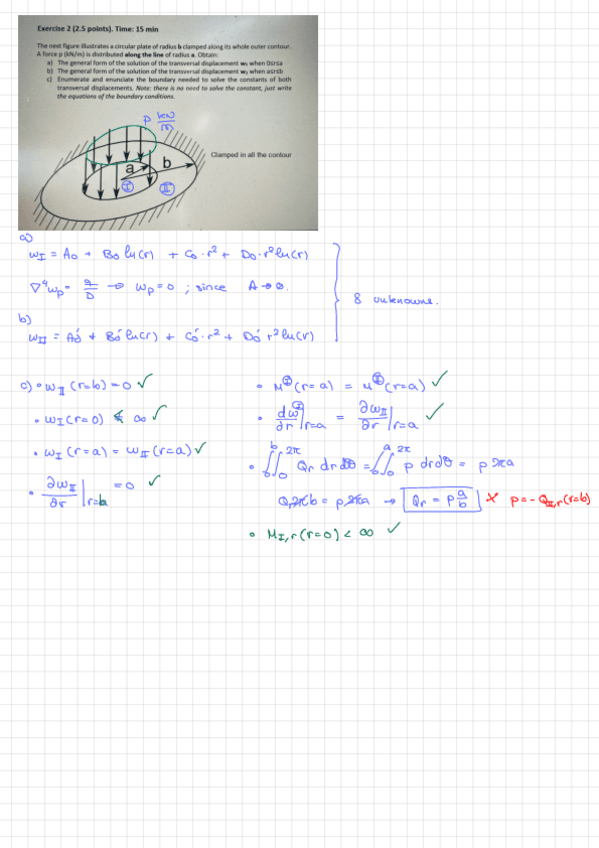 Exercise 2 (2.5 points). Time: 15 min
The next figure illustrates a circular plate of radius b clamped along its whole outer contour.
A force p (kN/m) is distributed along the line of radius a. Obtain:
a) The general form of the solution of the transversal displacement wI when 0≤r≤a
b) The general form of the solution of the transversal displacement wII when a≤r≤b
c) Enumerate and enunciate the boundary needed to solve the constants of both
transversal displacements. Note: there is no need to solve the constant, just write
the equations of the boundary conditions.
p kN/m
Clamped in all the contour
a b
I II
a)
wI = A0 + B0 ln(r) + C0·r² + D0·r² ln(r)
∇⁴wp = q/D → wp = 0 ; since A → 0.
8 unknowns.
b)
wII = A0' + B0' ln(r) + C0'·r² + D0' r² ln(r)
c) • wII (r=b) = 0 ✓
• M^I (r=a) = M^II (r=a) ✓
• wI (r=0) < ∞ ✓
• dw^I/dr |r=a = ∂wII/∂r |r=a ✓
• wI (r=a) = wII (r=a) ✓
• ∫0^b ∫0^2π Qr dr dθ = ∫0^a ∫0^2π p dr dθ = p 2πa
• ∂wII/∂r |r=b = 0 ✓
Qr 2πb = p 2πa → Qr = p a/b × p = - QII,r (r=b)
• MI,r (r=0) < ∞ ✓